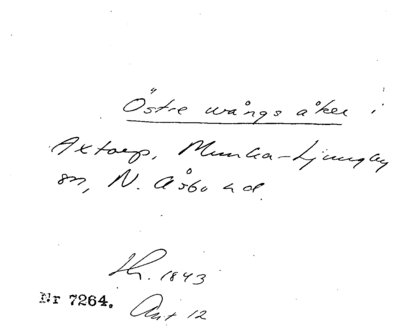 Östre wångs åker i
Axtorp, Munka-Ljungby
sn, N. Åsbo hd.
Lh. 1843
Nr 7264. Akt 12